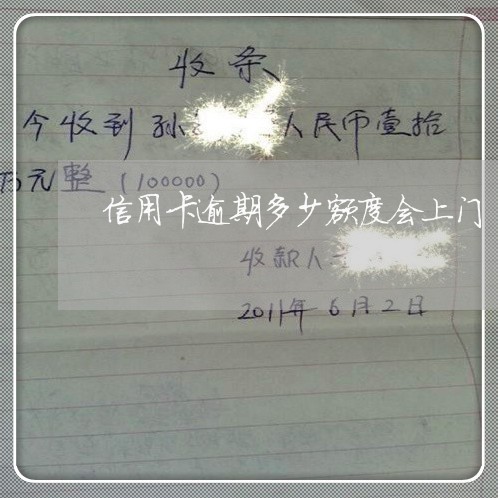 收条
今收到孙 人民币壹拾
万元整（100000）
信用卡逾期多少额度会上门
收款人
2011年6月2日